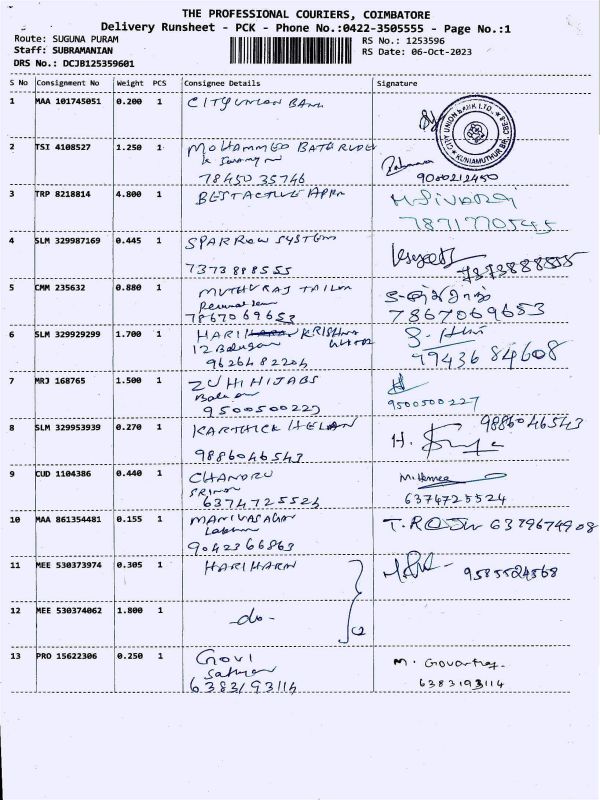 THE PROFESSIONAL COURIERS, COIMBATORE
Delivery Runsheet - PCK - Phone No.:0422-3505555 - Page No.:1
Route: SUGUNA PURAM RS No.: 1253596
Staff: SUBRAMANIAN RS Date: 06-Oct-2023
DRS No.: DCJB125359601
S No Consignment No Weight PCS Consignee Details Signature
1 MAA 101745051 0.200 1 CITY UNION BANK
CITY UNION BANK LTD. KUNIAMUTHUR BR. CBE-8
2 TSI 4108527 1.250 1 MOHAMMED BATHRUDE
78450 35746 9080212450
3 TRP 8218814 4.800 1 BESTACTIVE APPA
7871770545
4 SLM 329987169 0.445 1 SPARROW SYSTEMS
7373888555 7373888555
5 CMM 235632 0.880 1 MUTHURAJ TAILOR
7867069653 7867069653
6 SLM 329929299 1.700 1 HARI KRISHNA
9626482204 7943684608
7 MRJ 168765 1.500 1 ZUHI HIJABS
9500500227 9500500227
8 SLM 329953939 0.270 1 KARTHICK HELAN 9886046543
9886046543 H.
9 CUD 1104386 0.440 1 CHANDRU
6374725524 6374725524
10 MAA 861354481 0.155 1 MANIVASAGAN T.ROJA 6379674908
9042366863
11 MEE 530373974 0.305 1 HARIHARN 9585524568
12 MEE 530374062 1.800 1 -do- 2
13 PRO 15622306 0.250 1 GOVI M.
6383193114 6383193114